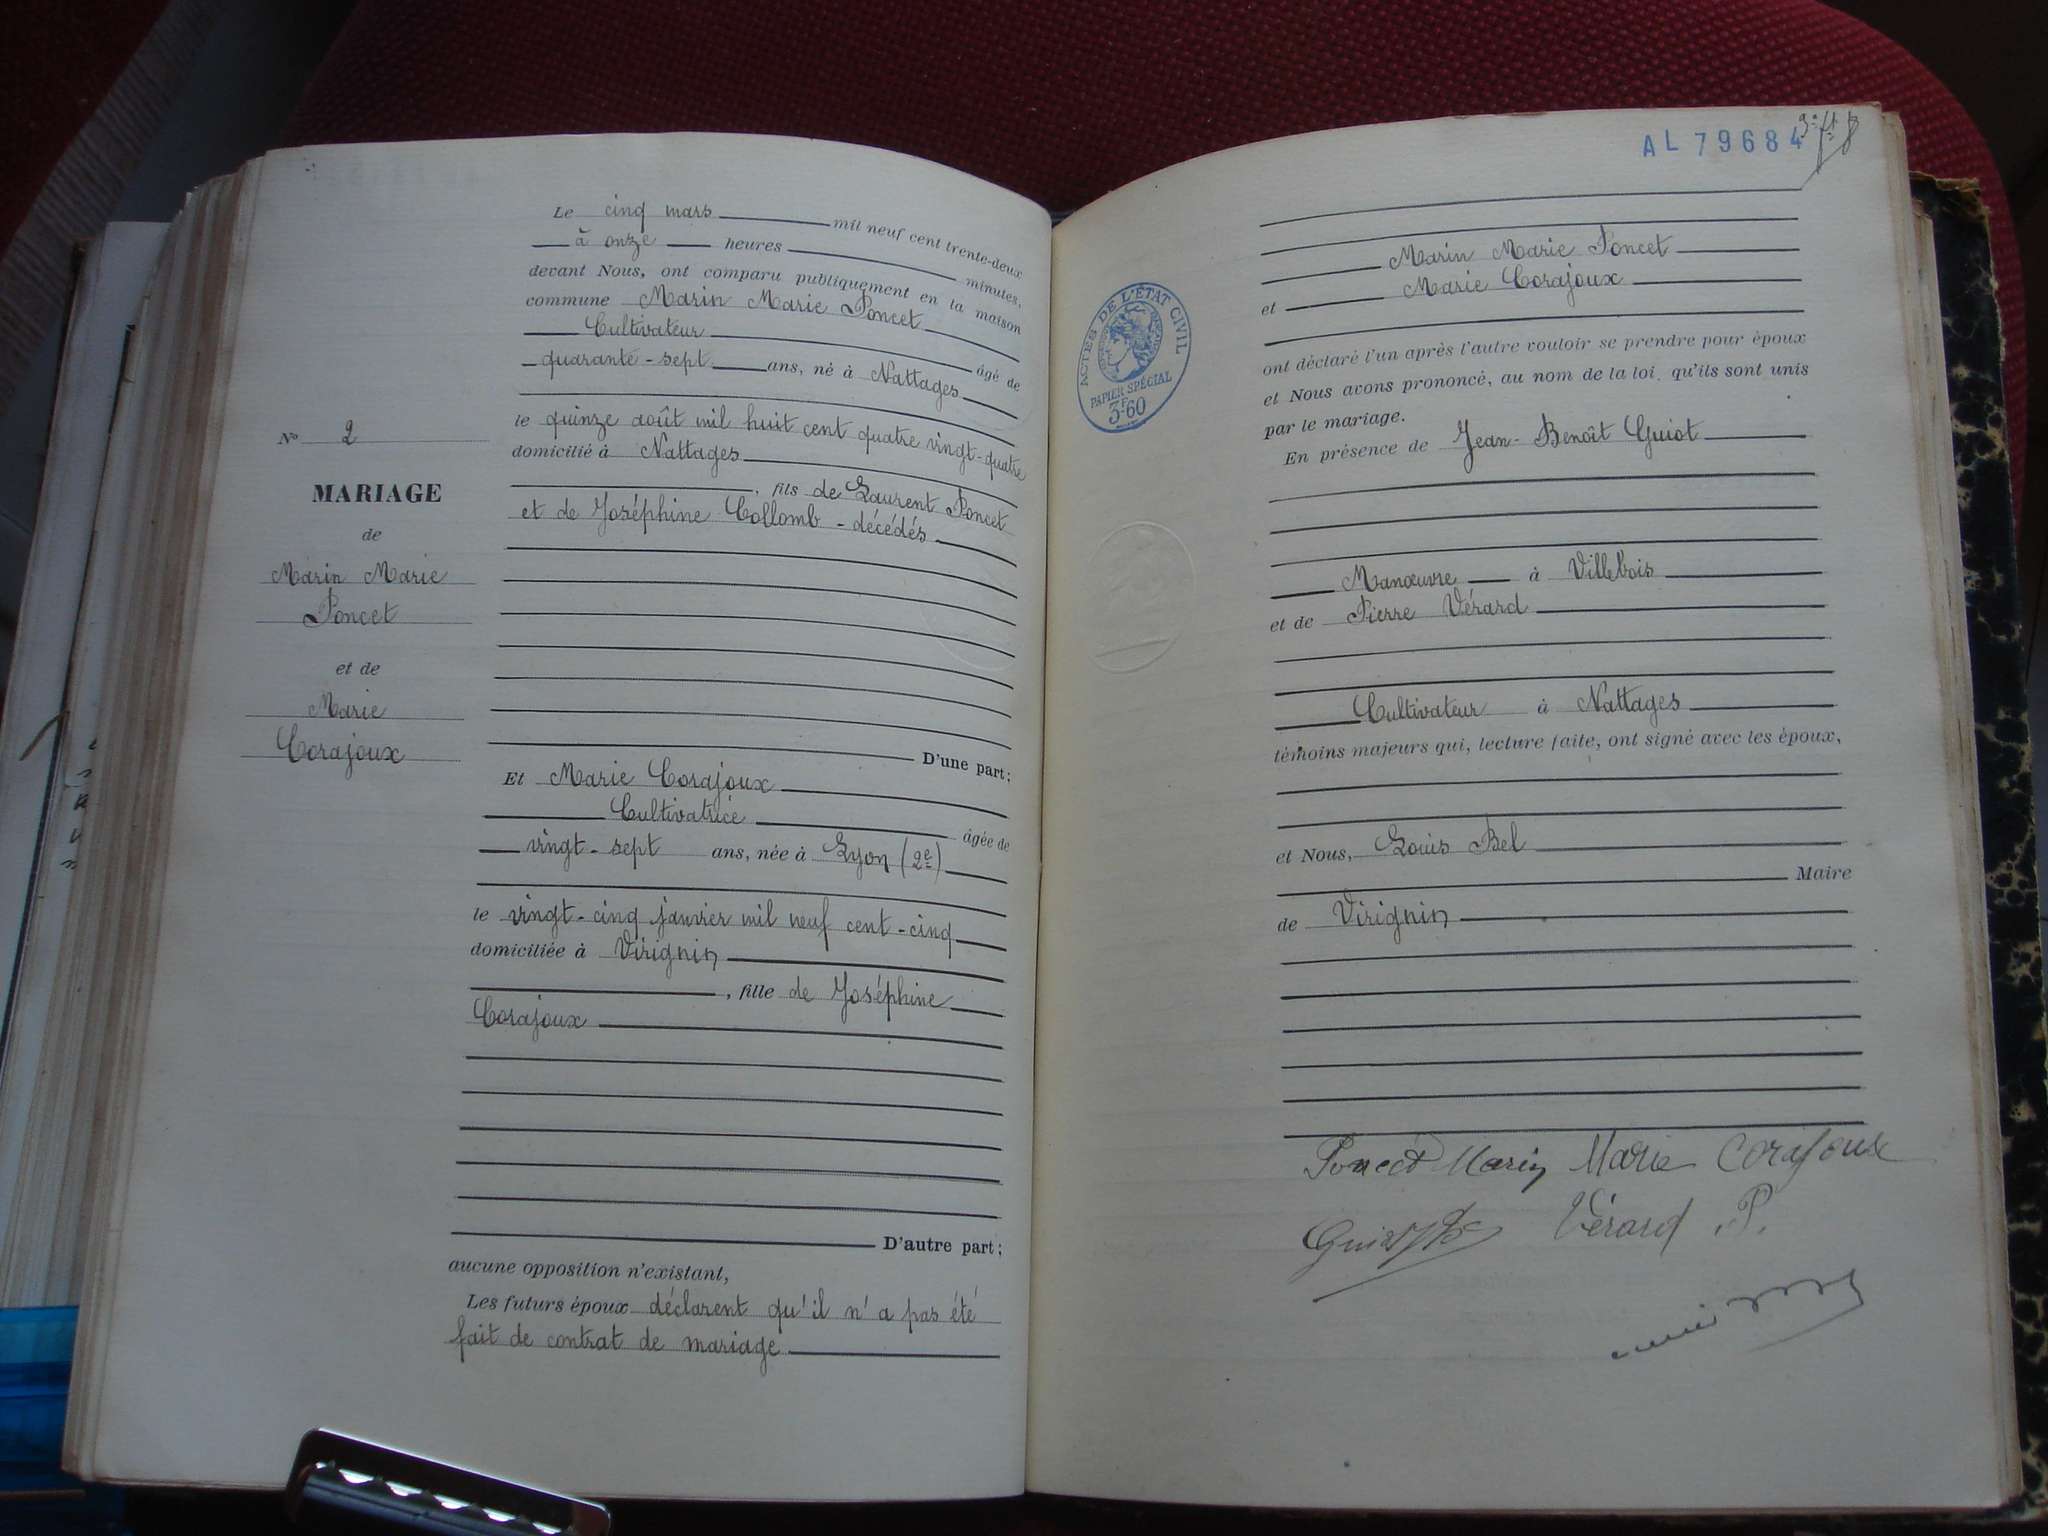 Le cinq mars mil neuf cent trente-deux
à onze heures minutes,
devant Nous, ont comparu publiquement en la maison
commune Marin Marie Poncet
Cultivateur âgé de
quarante-sept ans, né à Nattages
le quinze août mil huit cent quatre vingt-quatre
domicilié à Nattages
, fils de Laurent Poncet
et de Joséphine Collomb - décédés
N° 2
MARIAGE
de
Marin Marie
Poncet
et de
Marie
Corajoux
D'une part;
Et Marie Corajoux
Cultivatrice âgée de
vingt-sept ans, née à Lyon (2e)
le vingt-cinq janvier mil neuf cent-cinq
domiciliée à Virignin
, fille de Joséphine
Corajoux
D'autre part;
aucune opposition n'existant,
Les futurs époux déclarent qu'il n'a pas été
fait de contrat de mariage
AL 79684
Marin Marie Poncet
et Marie Corajoux
ACTES DE L'ÉTAT CIVIL
PAPIER SPÉCIAL
3F60
ont déclaré l'un après l'autre vouloir se prendre pour époux
et Nous avons prononcé, au nom de la loi, qu'ils sont unis
par le mariage.
En présence de Jean-Benoît Guiot
Manœuvre à Villebois
et de Pierre Vérard
Cultivateur à Nattages
témoins majeurs qui, lecture faite, ont signé avec les époux,
et Nous, Louis Bel
Maire
de Virignin
Poncet Marin Marie Corajoux
Guiot JB Vérard P.